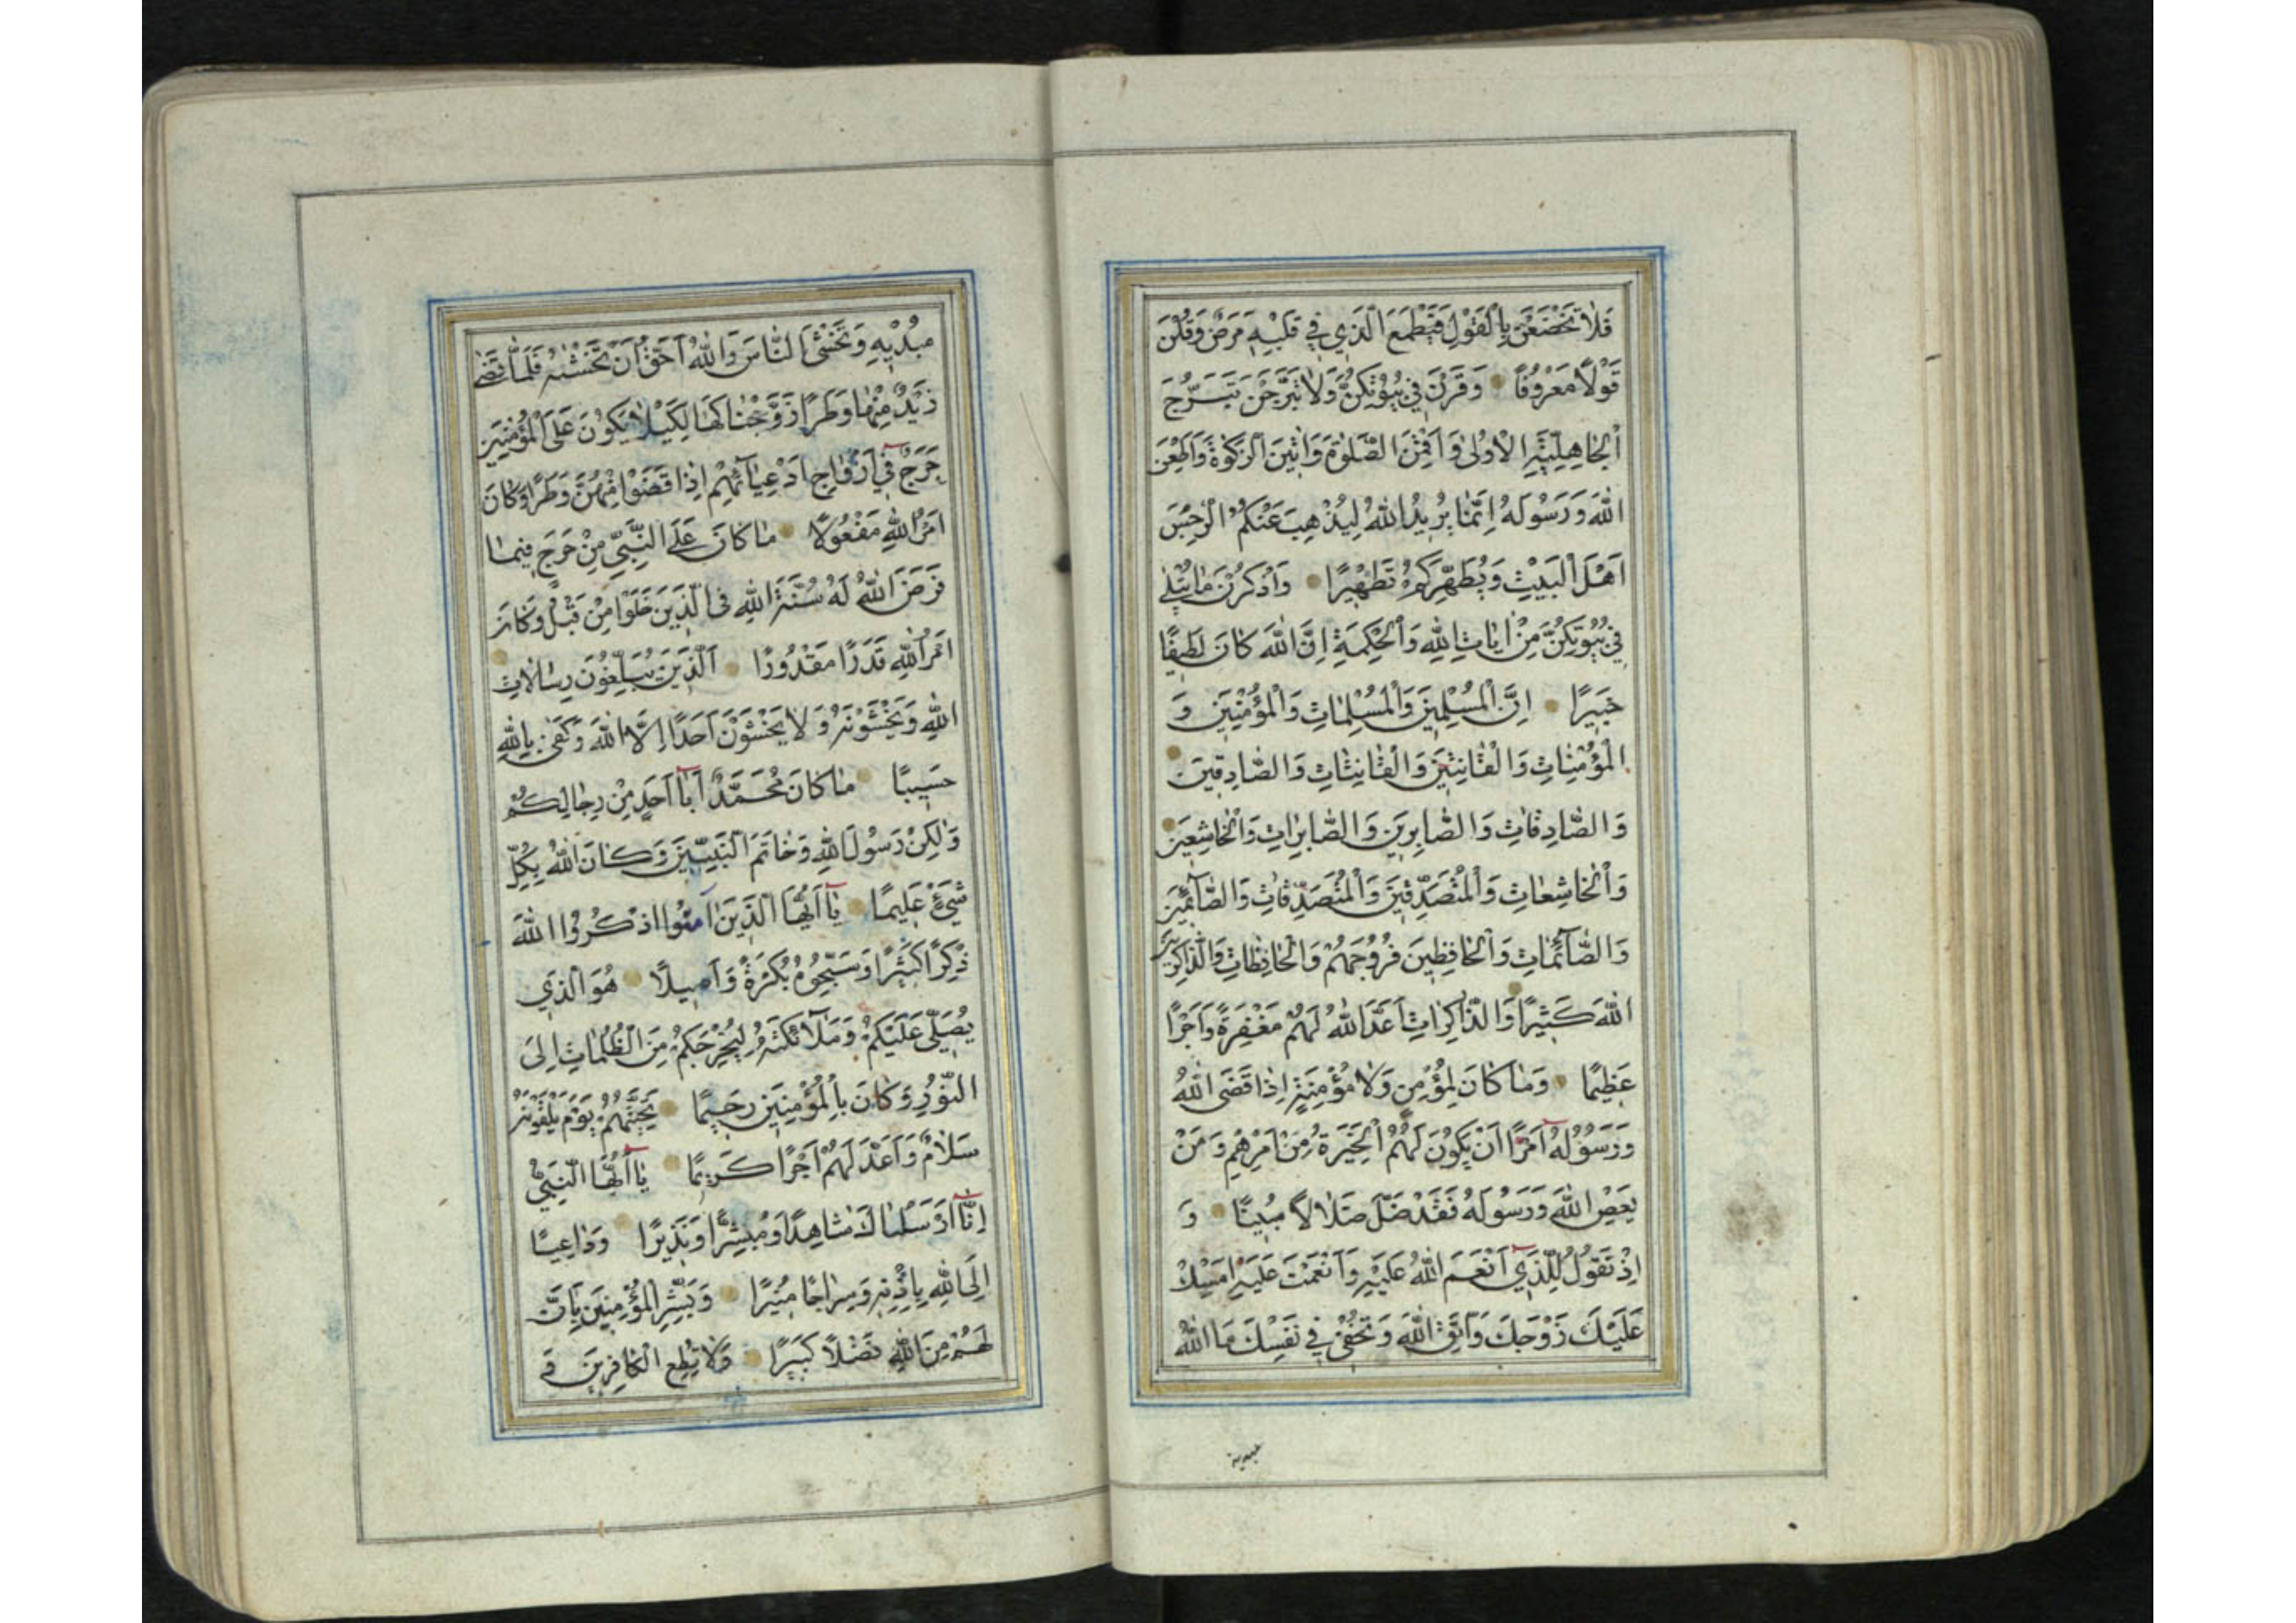 فَلَا تَخْضَعْنَ بِالْقَوْلِ فَيَطْمَعَ الَّذِي فِي قَلْبِهِ مَرَضٌ وَقُلْنَ
قَوْلًا مَعْرُوفًا وَقَرْنَ فِي بُيُوتِكُنَّ وَلَا تَبَرَّجْنَ تَبَرُّجَ
الْجَاهِلِيَّةِ الْأُولَى وَأَقِمْنَ الصَّلٰوةَ وَآتِينَ الزَّكٰوةَ وَأَطِعْنَ
اللهَ وَرَسُولَهُ إِنَّمَا يُرِيدُ اللهُ لِيُذْهِبَ عَنْكُمُ الرِّجْسَ
أَهْلَ الْبَيْتِ وَيُطَهِّرَكُمْ تَطْهِيرًا وَاذْكُرْنَ مَا يُتْلَى
فِي بُيُوتِكُنَّ مِنْ اٰيَاتِ اللهِ وَالْحِكْمَةِ إِنَّ اللهَ كَانَ لَطِيفًا
خَبِيرًا إِنَّ الْمُسْلِمِينَ وَالْمُسْلِمَاتِ وَالْمُؤْمِنِينَ وَ
الْمُؤْمِنَاتِ وَالْقَانِتِينَ وَالْقَانِتَاتِ وَالصَّادِقِينَ
وَالصَّادِقَاتِ وَالصَّابِرِينَ وَالصَّابِرَاتِ وَالْخَاشِعِينَ
وَالْخَاشِعَاتِ وَالْمُتَصَدِّقِينَ وَالْمُتَصَدِّقَاتِ وَالصَّائِمِينَ
وَالصَّائِمَاتِ وَالْحَافِظِينَ فُرُوجَهُمْ وَالْحَافِظَاتِ وَالذَّاكِرِينَ
اللهَ كَثِيرًا وَالذَّاكِرَاتِ أَعَدَّ اللهُ لَهُمْ مَغْفِرَةً وَأَجْرًا
عَظِيمًا وَمَا كَانَ لِمُؤْمِنٍ وَلَا مُؤْمِنَةٍ إِذَا قَضَى اللهُ
وَرَسُولُهُ أَمْرًا أَنْ يَكُونَ لَهُمُ الْخِيَرَةُ مِنْ أَمْرِهِمْ وَمَنْ
يَعْصِ اللهَ وَرَسُولَهُ فَقَدْ ضَلَّ ضَلَالًا مُبِينًا وَ
إِذْ تَقُولُ لِلَّذِي أَنْعَمَ اللهُ عَلَيْهِ وَأَنْعَمْتَ عَلَيْهِ أَمْسِكْ
عَلَيْكَ زَوْجَكَ وَاتَّقِ اللهَ وَتُخْفِي فِي نَفْسِكَ مَا اللهُ
مُبْدِيهِ وَتَخْشَى النَّاسَ وَاللهُ أَحَقُّ أَنْ تَخْشٰيهُ فَلَمَّا قَضٰى
زَيْدٌ مِنْهَا وَطَرًا زَوَّجْنَاكَهَا لِكَيْلَا يَكُونَ عَلَى الْمُؤْمِنِينَ
حَرَجٌ فِي أَزْوَاجِ أَدْعِيَائِهِمْ إِذَا قَضَوْا مِنْهُنَّ وَطَرًا وَكَانَ
أَمْرُ اللهِ مَفْعُولًا مَا كَانَ عَلَى النَّبِيِّ مِنْ حَرَجٍ فِيمَا
فَرَضَ اللهُ لَهُ سُنَّةَ اللهِ فِي الَّذِينَ خَلَوْا مِنْ قَبْلُ وَكَانَ
أَمْرُ اللهِ قَدَرًا مَقْدُورًا الَّذِينَ يُبَلِّغُونَ رِسَالَاتِ
اللهِ وَيَخْشَوْنَهُ وَلَا يَخْشَوْنَ أَحَدًا إِلَّا اللهَ وَكَفَى بِاللهِ
حَسِيبًا مَا كَانَ مُحَمَّدٌ أَبَا أَحَدٍ مِنْ رِجَالِكُمْ
وَلٰكِنْ رَسُولَ اللهِ وَخَاتَمَ النَّبِيِّينَ وَكَانَ اللهُ بِكُلِّ
شَيْءٍ عَلِيمًا يَا أَيُّهَا الَّذِينَ اٰمَنُوا اذْكُرُوا اللهَ
ذِكْرًا كَثِيرًا وَسَبِّحُوهُ بُكْرَةً وَأَصِيلًا هُوَ الَّذِي
يُصَلِّي عَلَيْكُمْ وَمَلَائِكَتُهُ لِيُخْرِجَكُمْ مِنَ الظُّلُمَاتِ إِلَى
النُّورِ وَكَانَ بِالْمُؤْمِنِينَ رَحِيمًا تَحِيَّتُهُمْ يَوْمَ يَلْقَوْنَهُ
سَلَامٌ وَأَعَدَّ لَهُمْ أَجْرًا كَرِيمًا يَا أَيُّهَا النَّبِيُّ
إِنَّا أَرْسَلْنَاكَ شَاهِدًا وَمُبَشِّرًا وَنَذِيرًا وَدَاعِيًا
إِلَى اللهِ بِإِذْنِهِ وَسِرَاجًا مُنِيرًا وَبَشِّرِ الْمُؤْمِنِينَ بِأَنَّ
لَهُمْ مِنَ اللهِ فَضْلًا كَبِيرًا وَلَا تُطِعِ الْكَافِرِينَ وَ